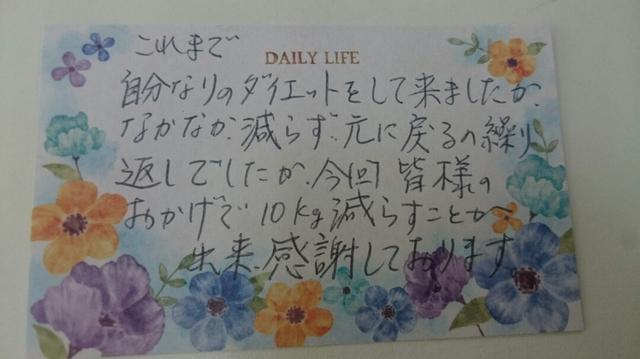 これまで
DAILY LIFE
自分なりのダイエットをして来ましたが、
なかなか、減らず、元に戻るの繰り
返しでしたが、今回皆様の
おかげで10kg減らすことが、
出来、感謝しております。